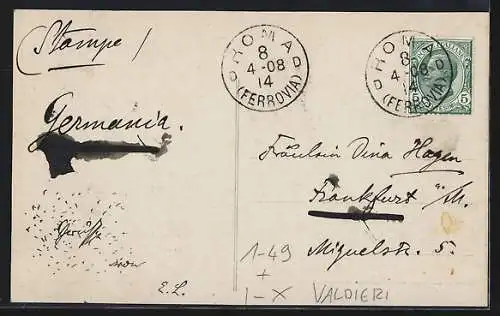 (Stampe)
ROMA
8
4-08
14
(FERROVIA)
ROMA
8
4-08
14
(FERROVIA)
5
Germania.
Fräulein Dina Hagen
Frankfurt a/M.
Miquelstr. 5.
Grüße
von
E. L.
1-49
+
1-X VALDIERI